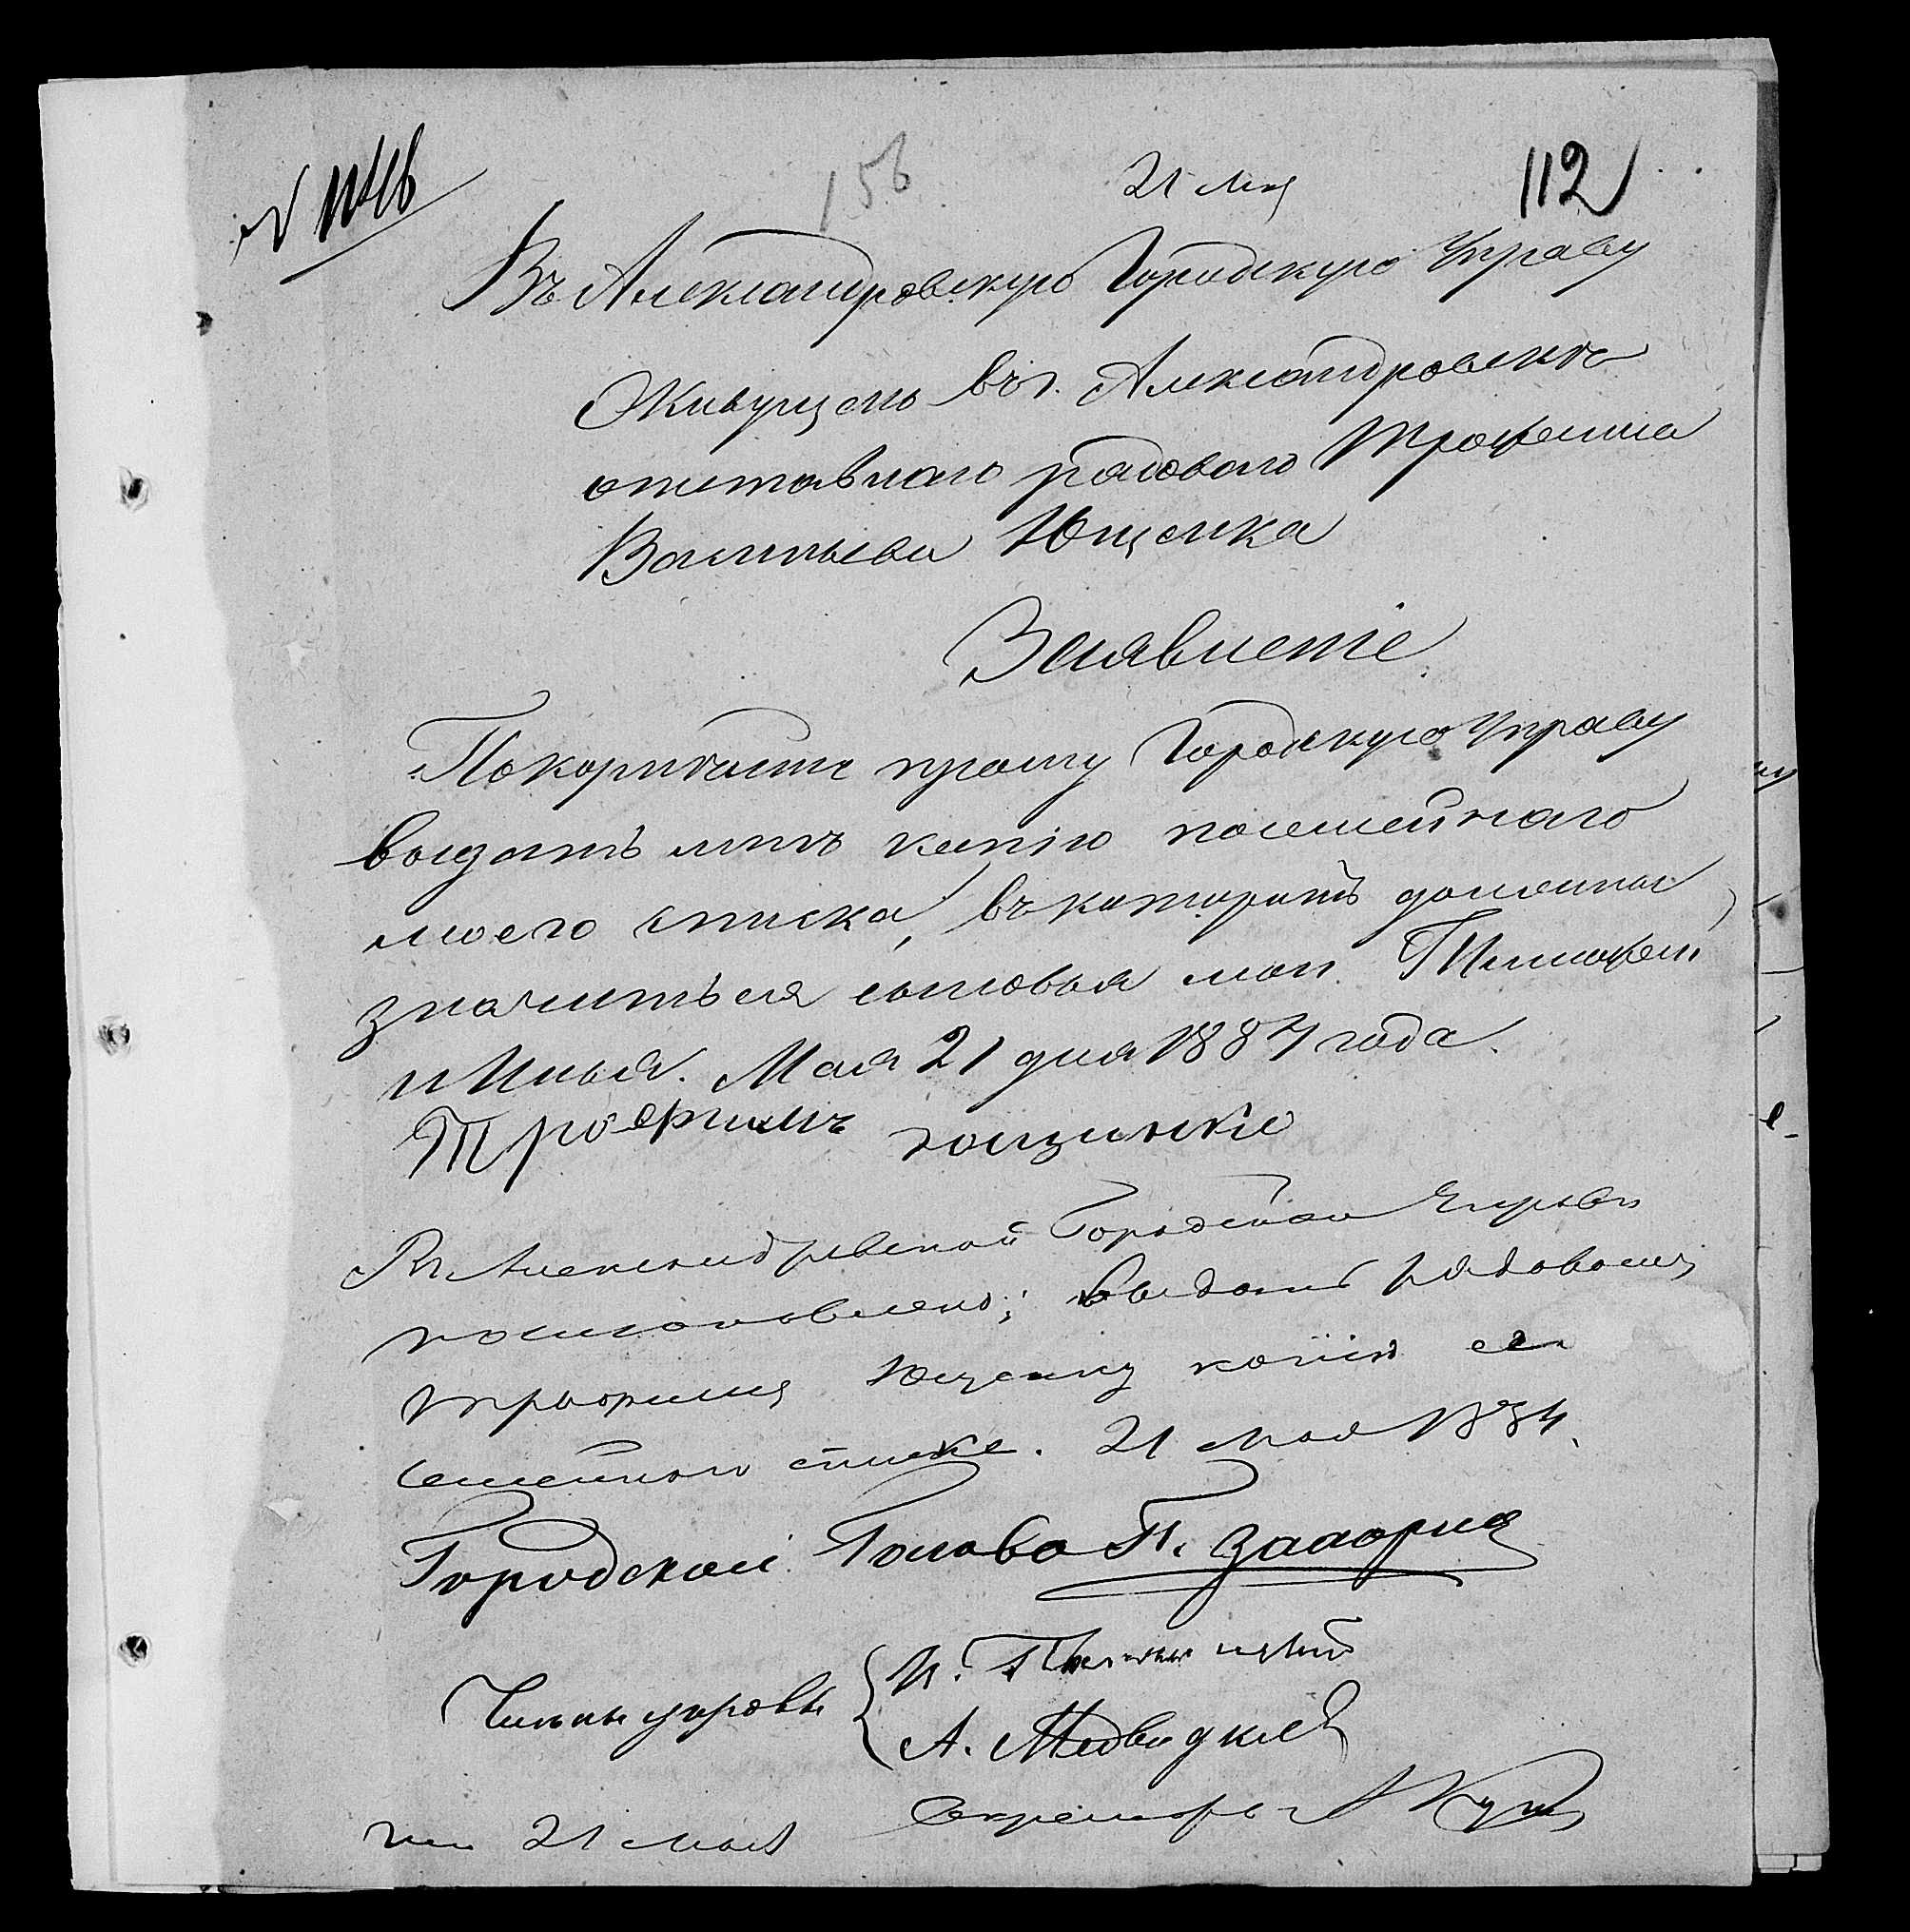 156
21 мая
112
Въ Александровскую Городскую Управу
Живущаго въ г. Александровскѣ
отставнаго рядоваго Трофима
Васильева Ющенка
Заявленіе
Покорнѣйше прошу Городскую Управу
выдать мнѣ копію посемейнаго
моего списка, въ которомъ должны
значиться сыновья мои Тимофей
и Илья. Мая 21 дня 1884 года.
Трофимъ ющинко
Въ Александровской Городской Управѣ
постановлено; выдать рядовому
Трофиму Ющенку копію его
семейнаго списка. 21 мая 1884.
Городской Голова П. Захорид
Члены управы
И.
А. Медведкив
Секретарь
21 мая